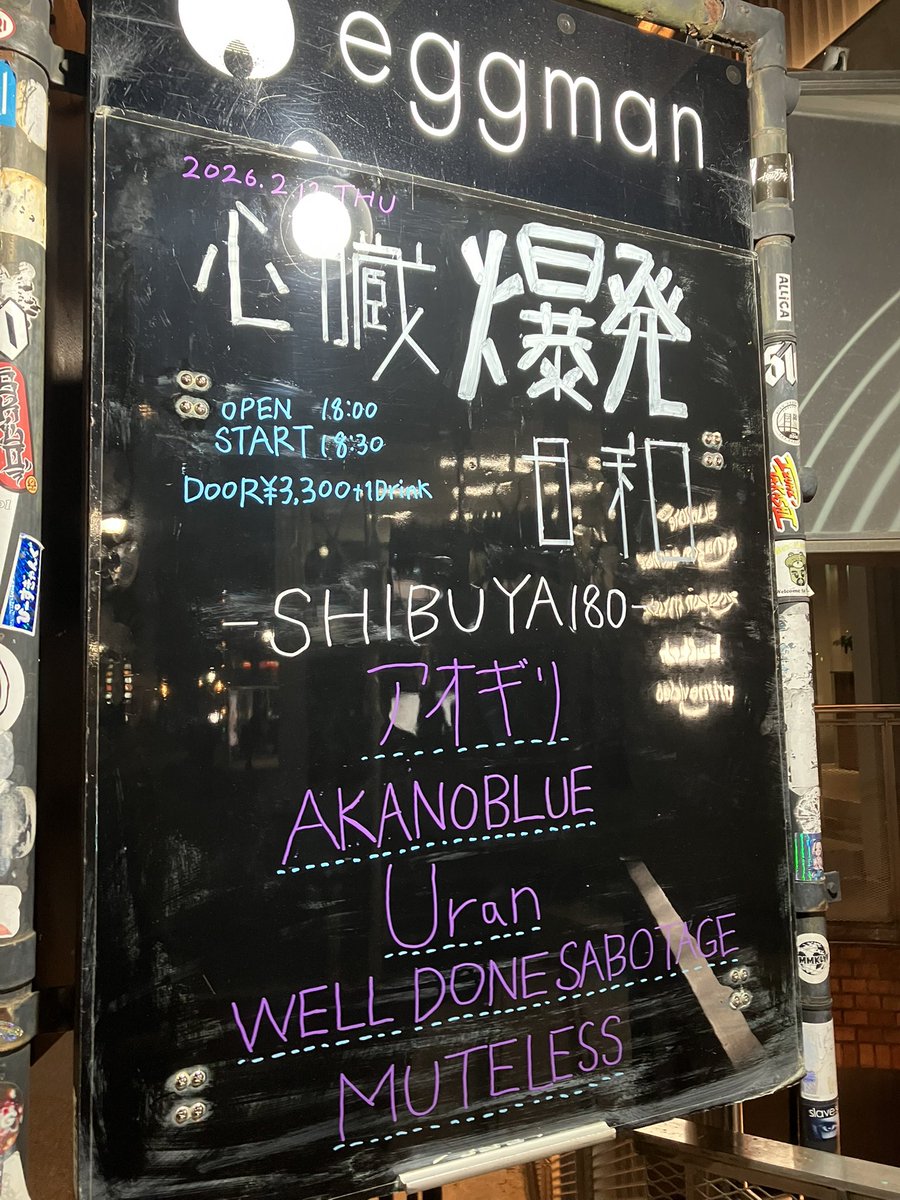 eggman
2026.2.12 THU
心臓爆発
日和
OPEN 18:00
START 18:30
DOOR¥3,300+1Drink
-SHIBUYA180-
アオギリ
AKANOBLUE
Uran
WELL DONE SABOTAGE
MUTELESS
ALLiCA
MMK
slave